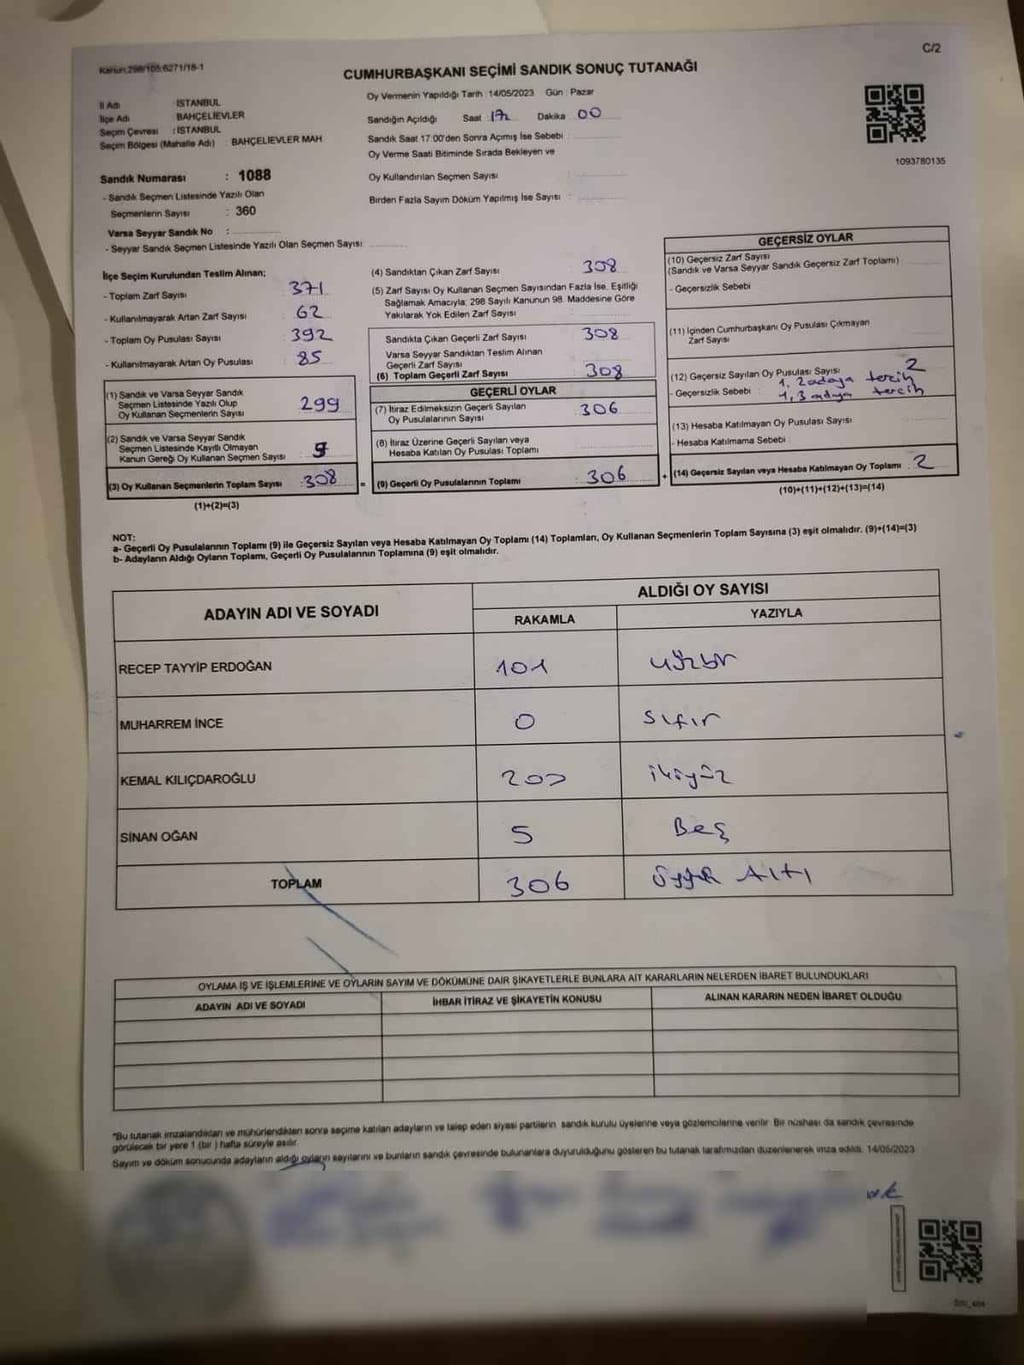 Kanun:298/105:6271/18-1
C/2
CUMHURBAŞKANI SEÇİMİ SANDIK SONUÇ TUTANAĞI
İl Adı : İSTANBUL
İlçe Adı : BAHÇELİEVLER
Seçim Çevresi : İSTANBUL
Seçim Bölgesi (Mahalle Adı) : BAHÇELİEVLER MAH.
Oy Vermenin Yapıldığı Tarih : 14/05/2023 Gün : Pazar
Sandığın Açıldığı Saat : 17 Dakika : 00
Sandık Saat 17:00'den Sonra Açımış İse Sebebi :
Oy Verme Saati Bitiminde Sırada Bekleyen ve
Oy Kullandırılan Seçmen Sayısı :
Birden Fazla Sayım Döküm Yapılmış İse Sayısı :
1093780135
Sandık Numarası : 1088
- Sandık Seçmen Listesinde Yazılı Olan
Seçmenlerin Sayısı : 360
Varsa Seyyar Sandık No :
- Seyyar Sandık Seçmen Listesinde Yazılı Olan Seçmen Sayısı:
İlçe Seçim Kurulundan Teslim Alınan;
- Toplam Zarf Sayısı : 371
- Kullanılmayarak Artan Zarf Sayısı : 62
- Toplam Oy Pusulası Sayısı : 392
- Kullanılmayarak Artan Oy Pusulası : 85
(1) Sandık ve Varsa Seyyar Sandık
Seçmen Listesinde Yazılı Olup
Oy Kullanan Seçmenlerin Sayısı : 299
(2) Sandık ve Varsa Seyyar Sandık
Seçmen Listesinde Kayıtlı Olmayan
Kanun Gereği Oy Kullanan Seçmen Sayısı : 9
(3) Oy Kullanan Seçmenlerin Toplam Sayısı : 308
(1)+(2)=(3)
(4) Sandıktan Çıkan Zarf Sayısı : 308
(5) Zarf Sayısı Oy Kullanan Seçmen Sayısından Fazla İse, Eşitliği
Sağlamak Amacıyla; 298 Sayılı Kanunun 98. Maddesine Göre
Yakılarak Yok Edilen Zarf Sayısı :
Sandıkta Çıkan Geçerli Zarf Sayısı : 308
Varsa Seyyar Sandıktan Teslim Alınan
Geçerli Zarf Sayısı :
(6) Toplam Geçerli Zarf Sayısı : 308
GEÇERLİ OYLAR
(7) İtiraz Edilmeksizin Geçerli Sayılan
Oy Pusulalarının Sayısı : 306
(8) İtiraz Üzerine Geçerli Sayılan veya
Hesaba Katılan Oy Pusulası Toplamı :
= (9) Geçerli Oy Pusulalarının Toplamı : 306 +
GEÇERSİZ OYLAR
(10) Geçersiz Zarf Sayısı
(Sandık ve Varsa Seyyar Sandık Geçersiz Zarf Toplamı) :
- Geçersizlik Sebebi :
(11) İçinden Cumhurbaşkanı Oy Pusulası Çıkmayan
Zarf Sayısı :
(12) Geçersiz Sayılan Oy Pusulası Sayısı : 2
- Geçersizlik Sebebi : 1, 2 adaya tercih
1, 3 adaya tercih
(13) Hesaba Katılmayan Oy Pusulası Sayısı :
- Hesaba Katılmama Sebebi :
(14) Geçersiz Sayılan veya Hesaba Katılmayan Oy Toplamı : 2
(10)+(11)+(12)+(13)=(14)
NOT:
a- Geçerli Oy Pusulalarının Toplamı (9) ile Geçersiz Sayılan veya Hesaba Katılmayan Oy Toplamı (14) Toplamları, Oy Kullanan Seçmenlerin Toplam Sayısına (3) eşit olmalıdır. (9)+(14)=(3)
b- Adayların Aldığı Oyların Toplamı, Geçerli Oy Pusulalarının Toplamına (9) eşit olmalıdır.
ADAYIN ADI VE SOYADI
ALDIĞI OY SAYISI
RAKAMLA YAZIYLA
RECEP TAYYİP ERDOĞAN 101 yüzbir
MUHARREM İNCE 0 Sıfır
KEMAL KILIÇDAROĞLU 200 ikiyüz
SİNAN OĞAN 5 Beş
TOPLAM 306 üçyüz Altı
OYLAMA İŞ VE İŞLEMLERİNE VE OYLARIN SAYIM VE DÖKÜMÜNE DAİR ŞİKAYETLERLE BUNLARA AİT KARARLARIN NELERDEN İBARET BULUNDUKLARI
ADAYIN ADI VE SOYADI İHBAR İTİRAZ VE ŞİKAYETİN KONUSU ALINAN KARARIN NEDEN İBARET OLDUĞU
*Bu tutanak imzalandıktan ve mühürlendikten sonra seçime katılan adayların ve talep eden siyasi partilerin sandık kurulu üyelerine veya gözlemcilerine verilir. Bir nüshası da sandık çevresinde
görülecek bir yere 1 (bir ) hafta süreyle asılır.
Sayım ve döküm sonucunda adayların aldığı oyların sayılarını ve bunların sandık çevresinde bulunanlara duyurulduğunu gösteren bu tutanak tarafımızdan düzenlenerek imza edildi. 14/05/2023